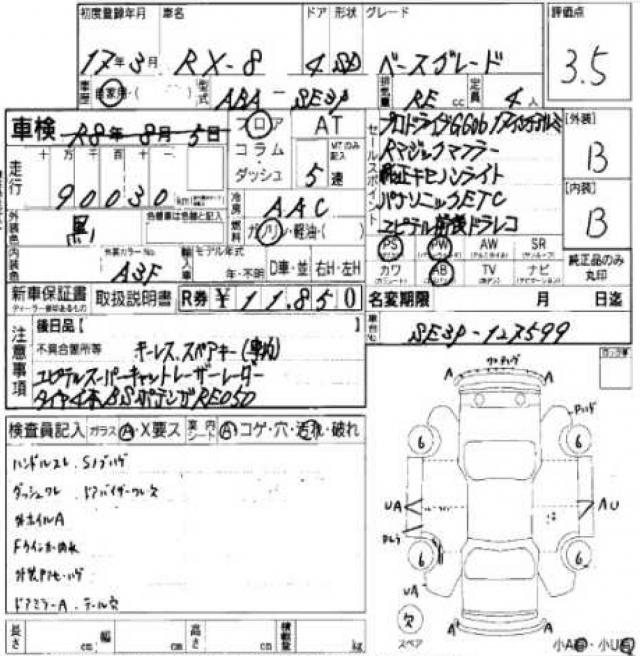 初度登録年月 車名 ドア 形状 グレード 評価点
17年3月 RX-8 4 SD ベースグレード 3.5
車歴 自家用・( ) 型式 ABA-SE3P 排気量 RE cc 定員 4人
車検 R8年8月5日 フロア AT
コラム
ダッシュ MTのみ記入 5速
セールスポイント
Rマジックマフラー
純正キセノンライト
パナソニックETC
ユピテル前後ドラレコ
[外装] B
[内装] B
走行 十万千百十一
90030 km
冷房 AAC
燃料 ガソリン・軽油・( )
外装色 黒 色替車は色替と記入
内装色 外装カラーNo. A3F 輸入車 モデル年式 年・不明 D車・並 右H・左H
PS PW AW SR
カワ AB TV ナビ
純正品のみ丸印
新車保証書 取扱説明書 R券 ¥11,850
ディーラー保証あるもの
名変期限 月 日迄
車台No. SE3P-127599
注意事項
後日品【
不具合箇所等 キーレス、スペアキー
ユピテルスーパーキャットレーザーレーダー
タイヤ4本BSポテンザRE050
検査員記入 ガラス A・X要ス 室内シート A コゲ・穴・汚れ・破れ
ハンドルスレ・Sノブハゲ
ダッシュワレ・ドアバイザーワレ欠
外ホイルA
ドアミラーA・テール欠
長さ cm 幅 cm 高さ cm 積載量 kg
A A
6 6
UA
AU
6 6
UA
欠
スペア
A A
小A 小U